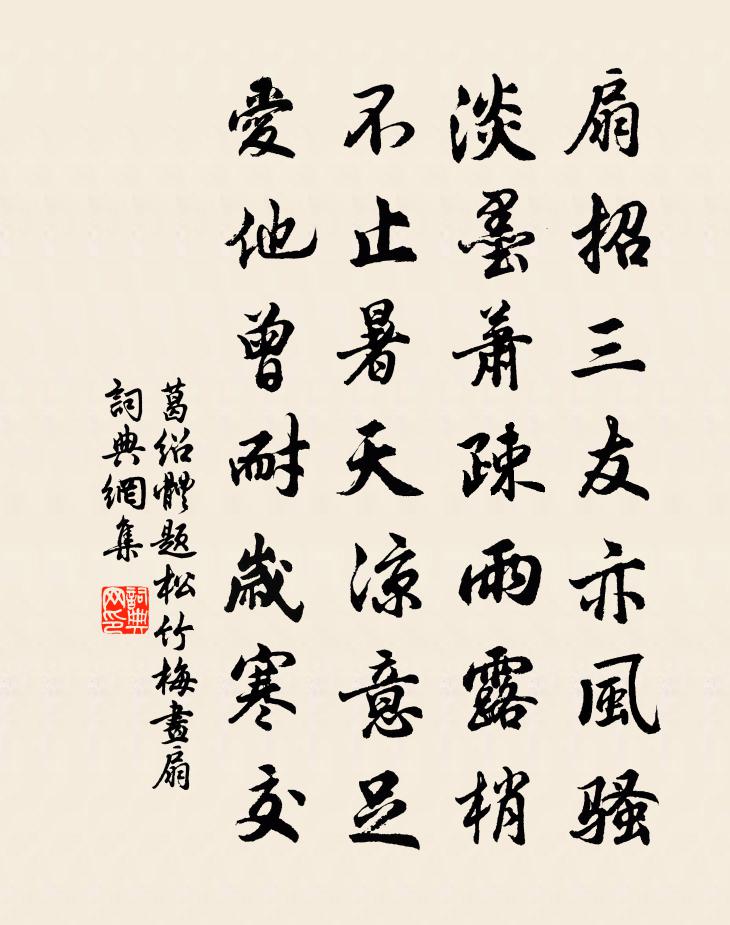 扇招三友亦風騷
淡墨蕭疎雨露梢
不止暑天涼意足
愛他曾耐歲寒交
葛绍體題松竹梅畫扇
詞典網集
詞典网印